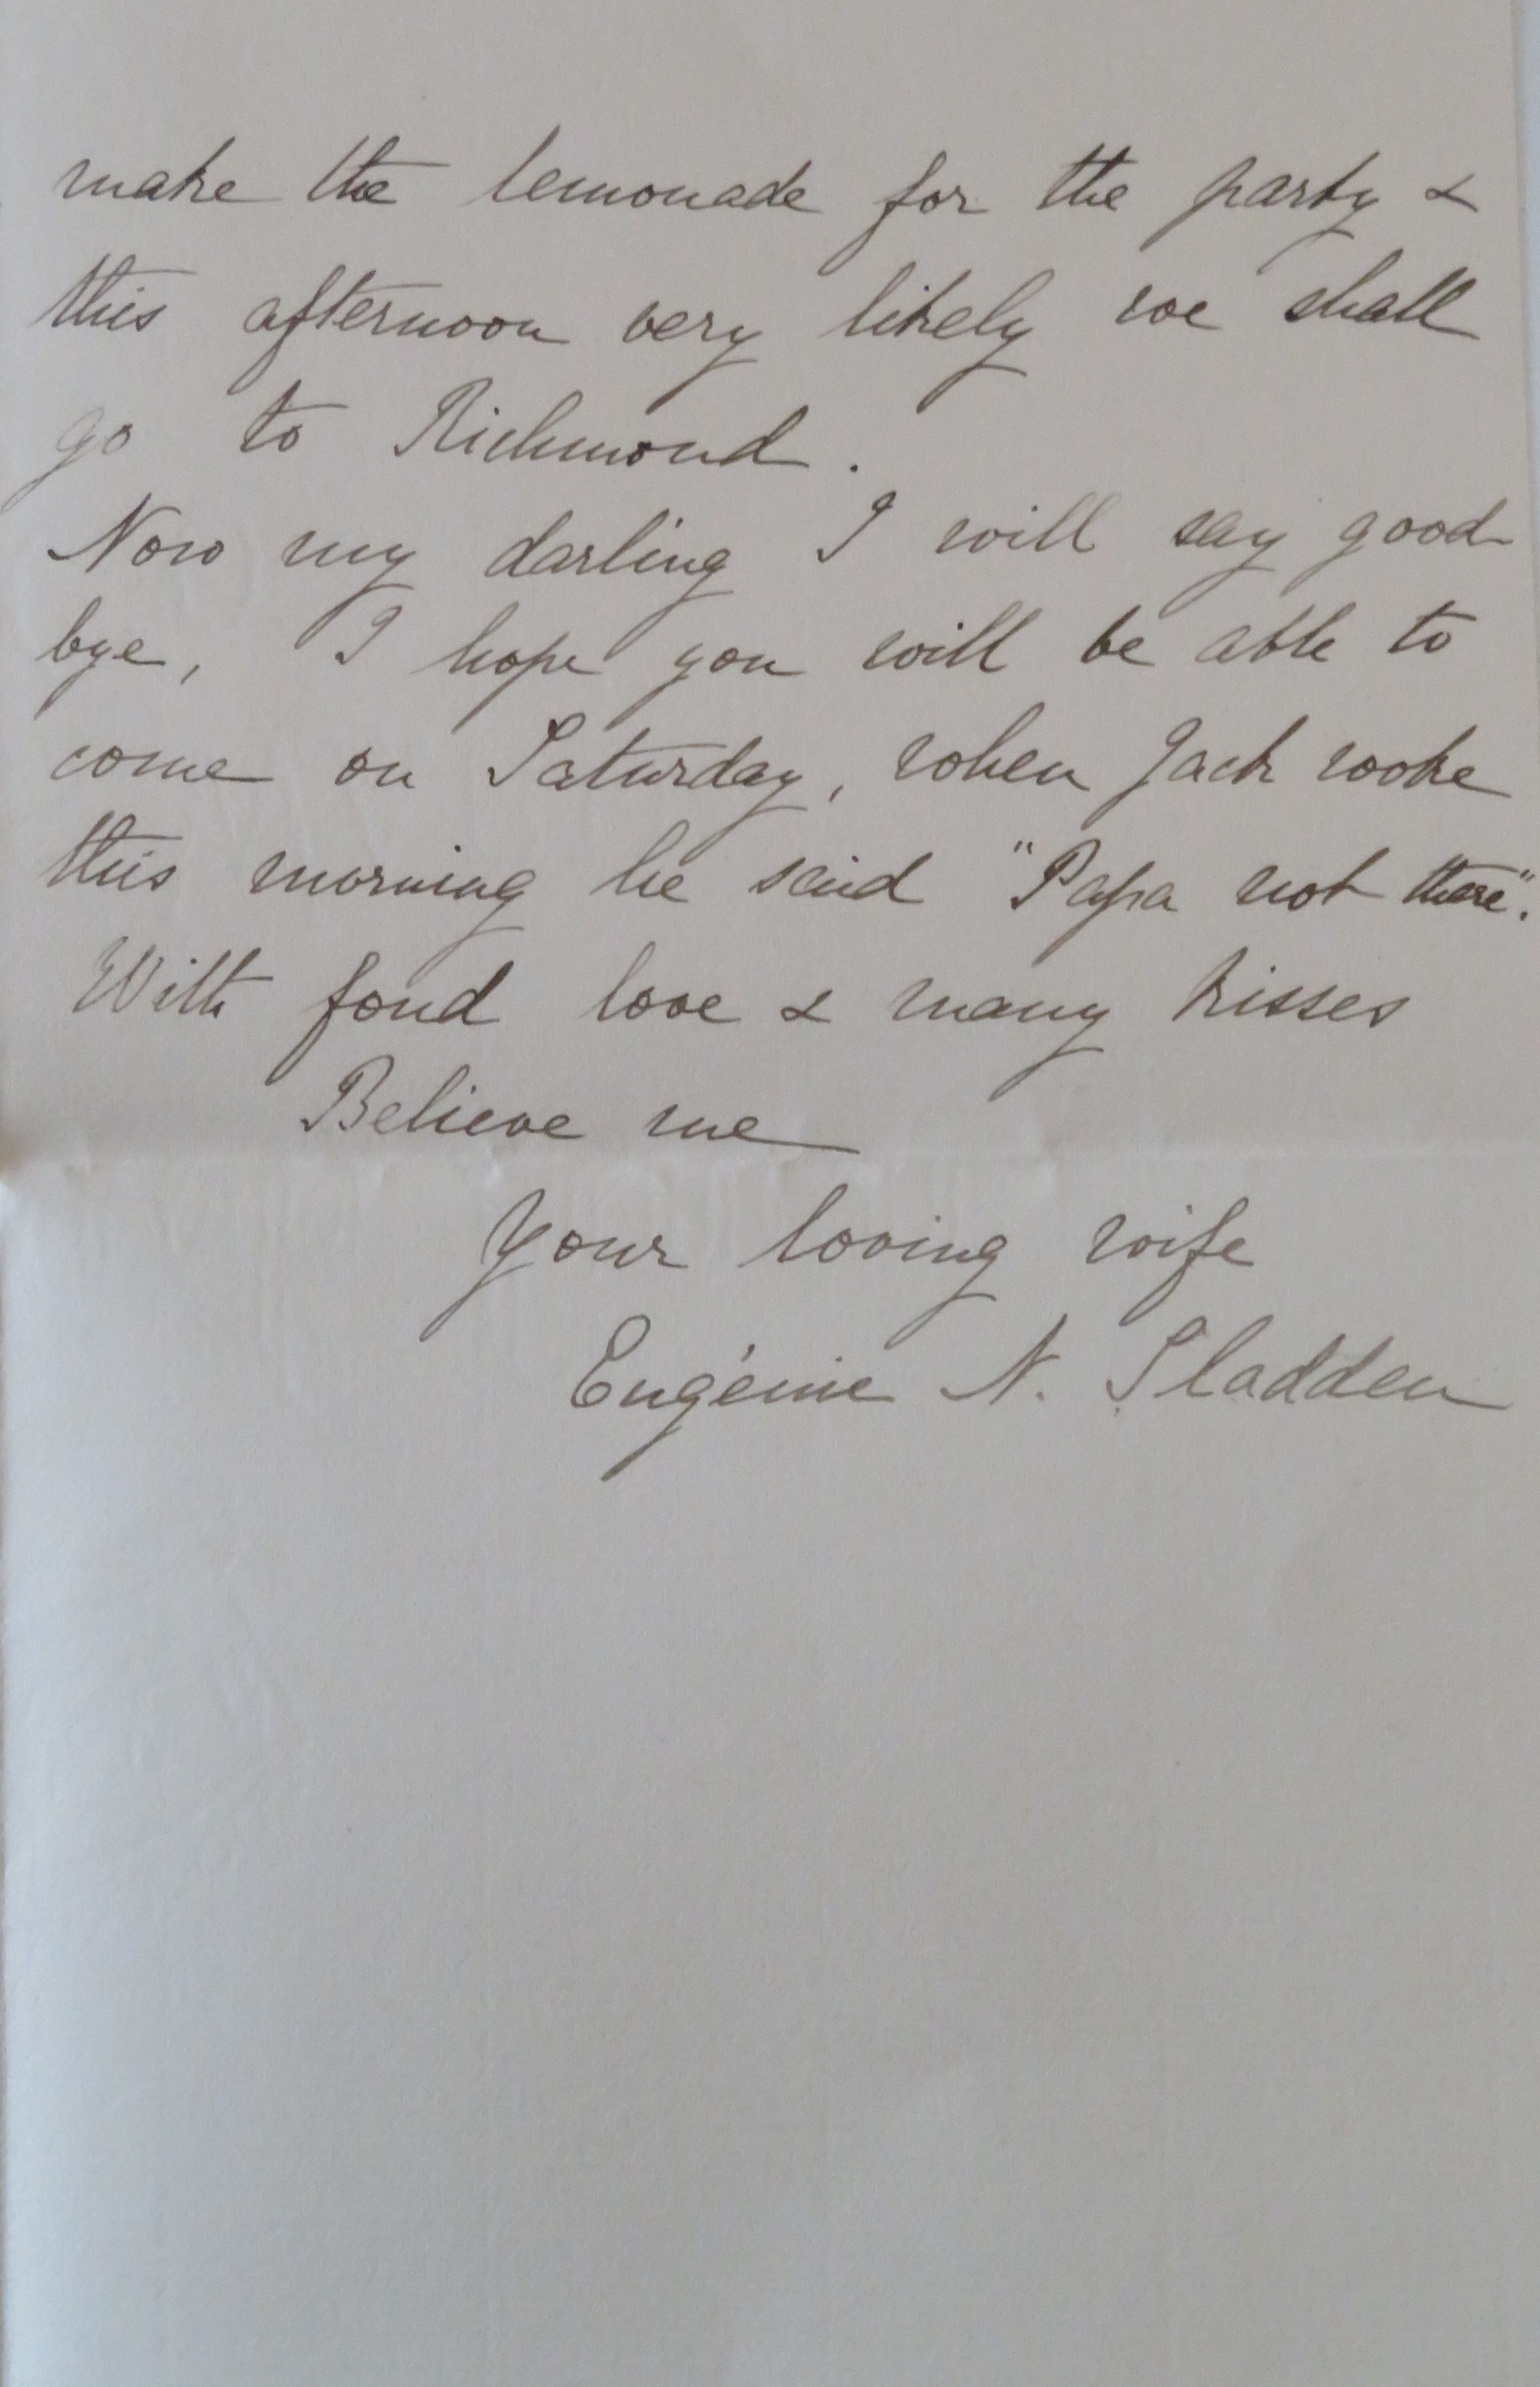 make the lemonade for the party &
this afternoon very likely we shall
go to Richmond.
Now my darling I will say good
bye, I hope you will be able to
come on Saturday, when Jack woke
this morning he said "Papa not there".
With fond love & many kisses
Believe me
Your loving wife
Eugénie N. Sladden